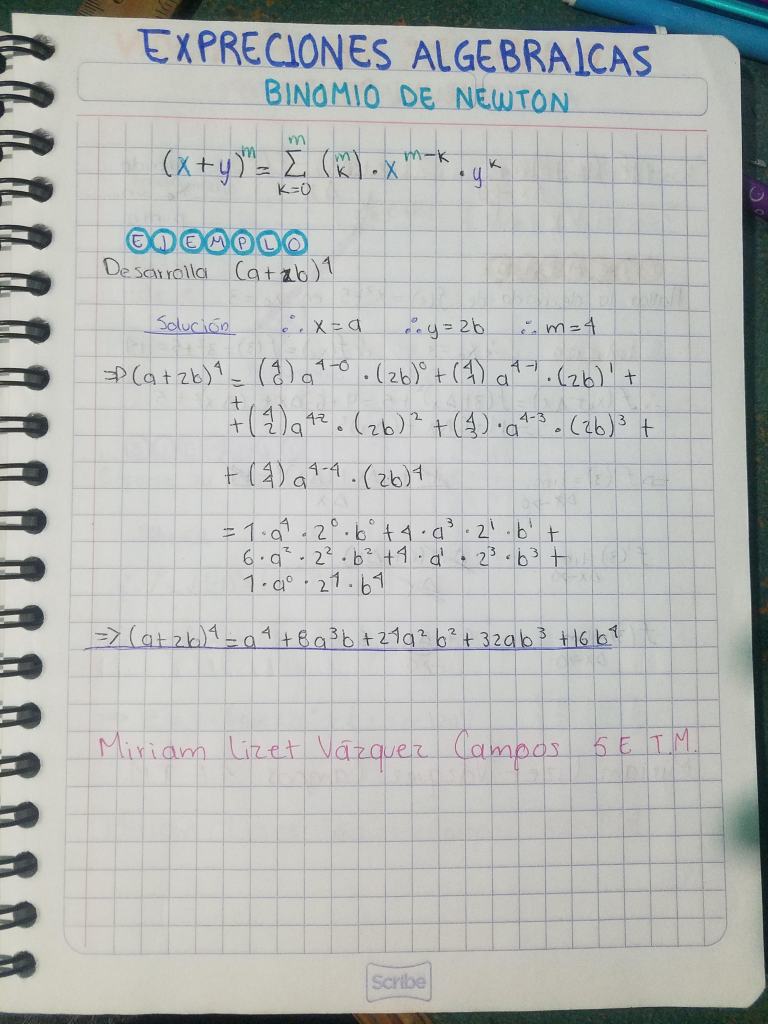 EXPRECIONES ALGEBRAICAS
BINOMIO DE NEWTON
(x+y)^m = Σ_{k=0}^{m} (m k) · x^{m-k} · y^k
EJEMPLO
Desarrolla (a+2b)^4
Solución ∴ x=a ∴ y=2b ∴ m=4
⇒ (a+2b)^4 = (4 0) a^{4-0} · (2b)^0 + (4 1) a^{4-1} · (2b)^1 +
+
+ (4 2) a^{4-2} · (2b)^2 + (4 3) · a^{4-3} · (2b)^3 +
+ (4 4) a^{4-4} · (2b)^4
= 1 · a^4 · 2^0 · b^0 + 4 · a^3 · 2^1 · b^1 +
6 · a^2 · 2^2 · b^2 + 4 · a^1 · 2^3 · b^3 +
1 · a^0 · 2^4 · b^4
=> (a+2b)^4 = a^4 + 8a^3b + 24a^2b^2 + 32ab^3 + 16b^4
Miriam Lizet Vázquez Campos 5 E T.M.
Scribe